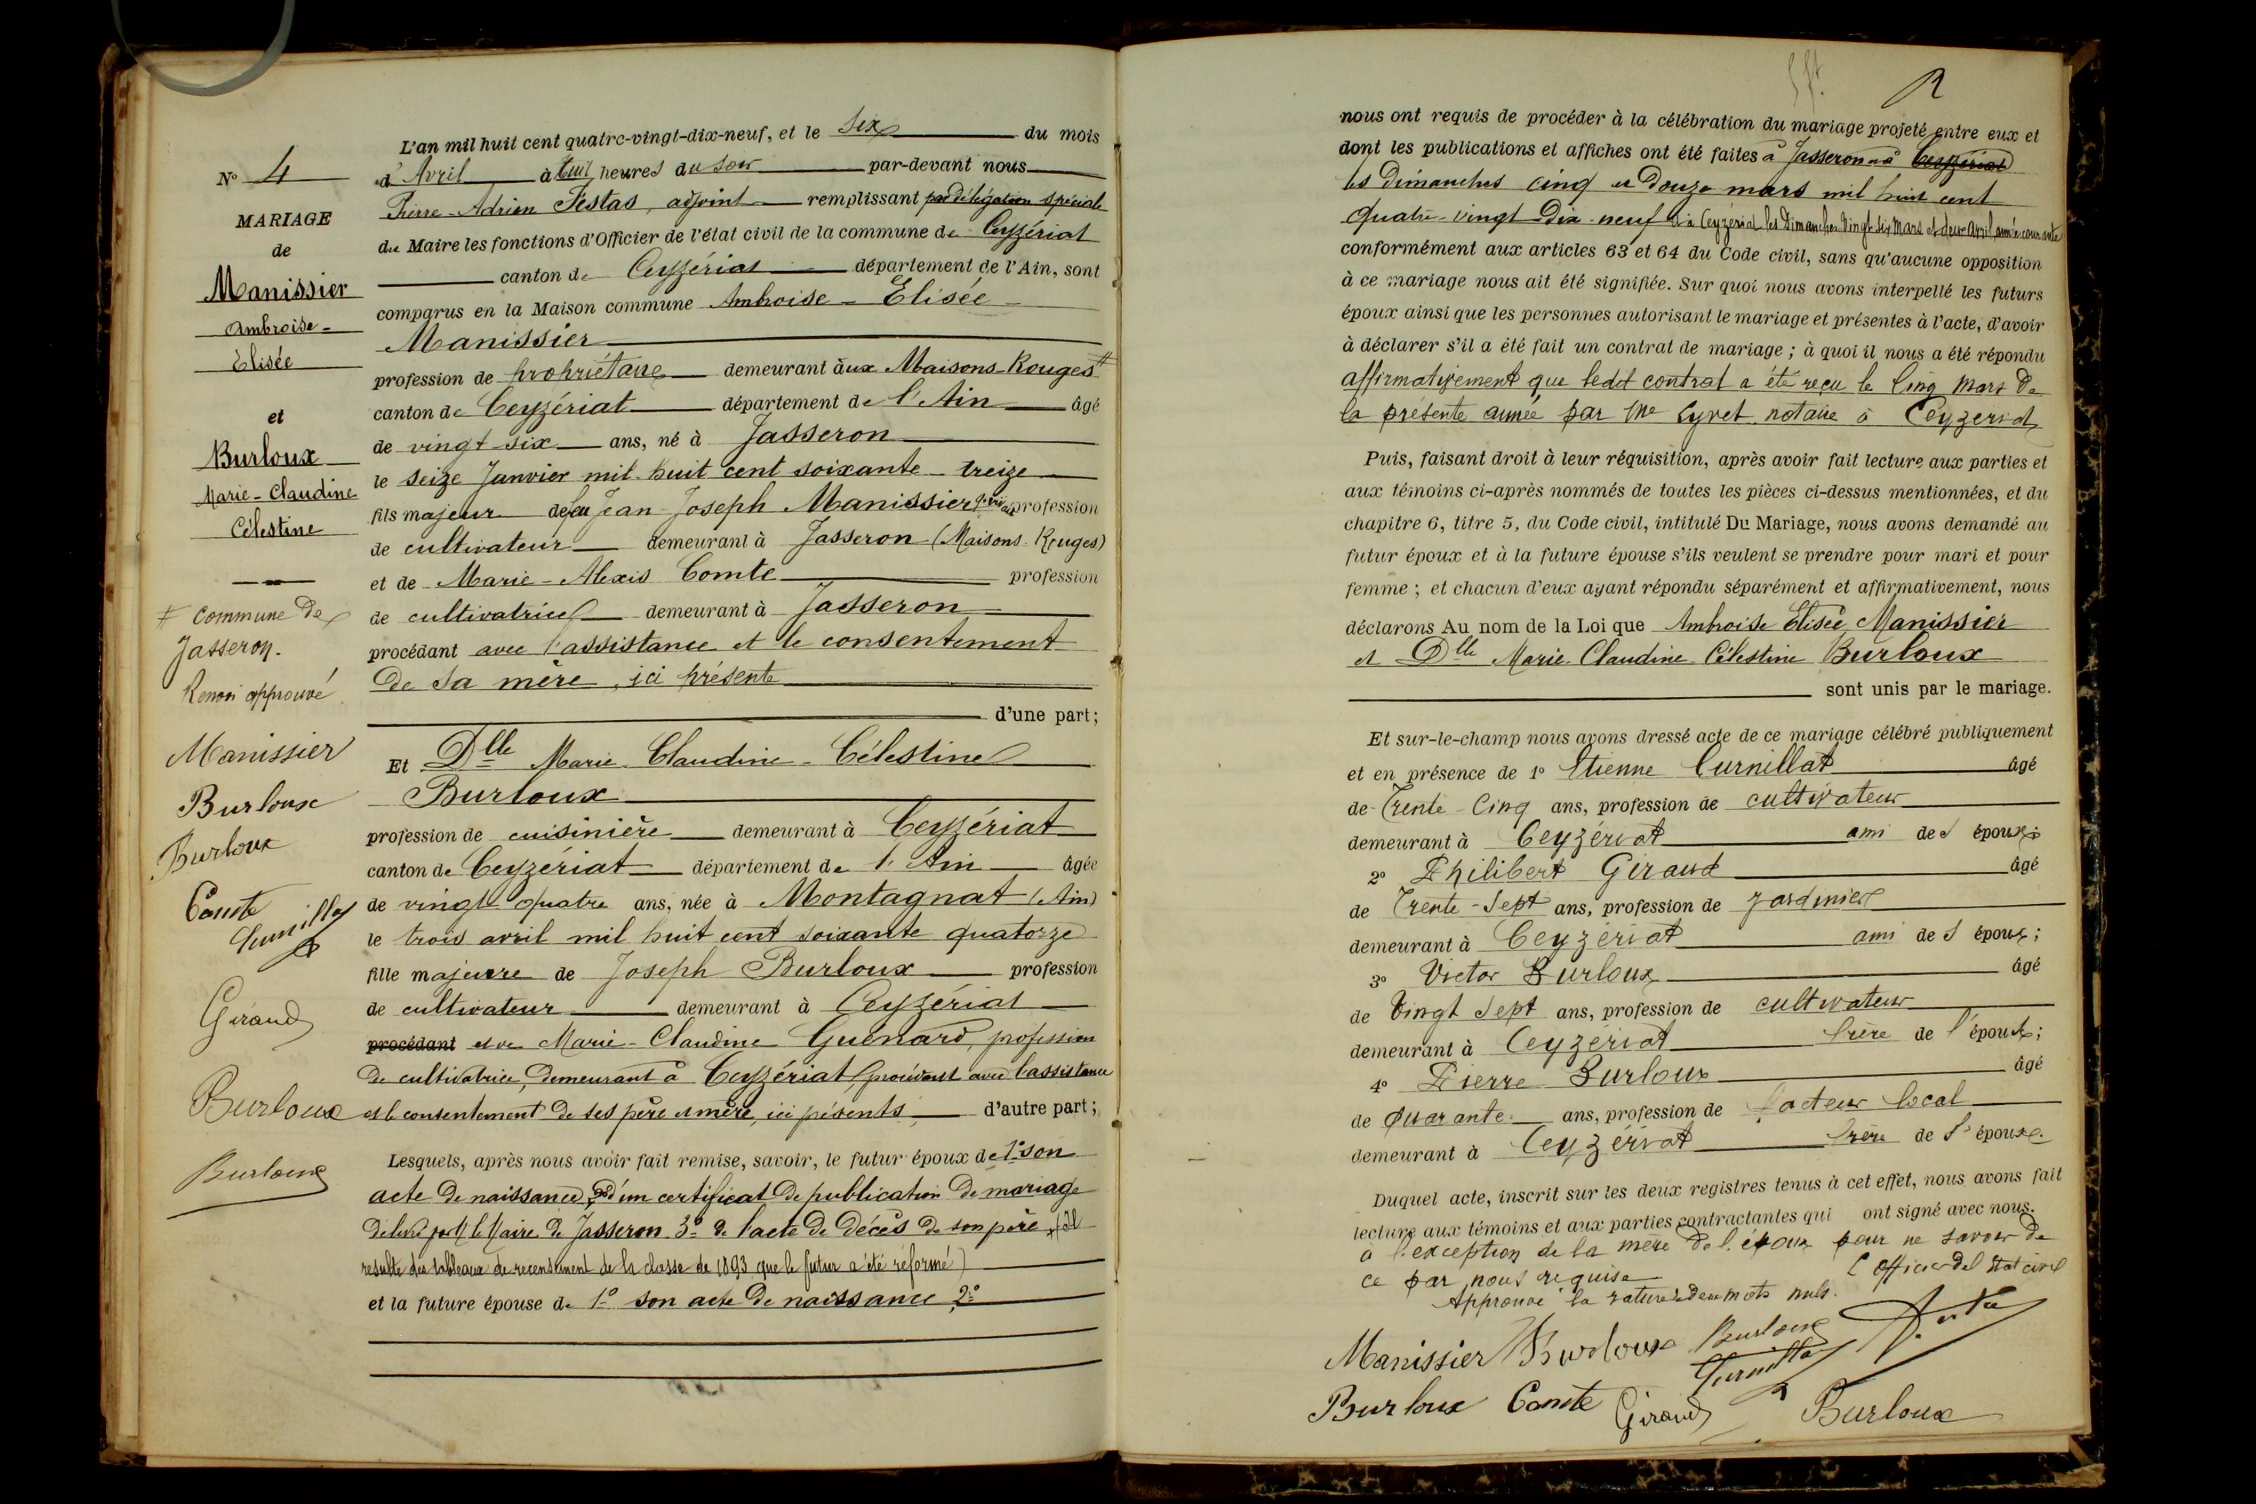 L'an mil huit cent quatre-vingt-dix-neuf, et le six du mois
d'Avril à huit heures du soir par-devant nous
Pierre-Adrien Festas, adjoint remplissant par délégation spéciale
du Maire les fonctions d'Officier de l'état civil de la commune de Ceyzériat
canton de Ceyzériat département de l'Ain, sont
comparus en la Maison commune Ambroise-Elisée
Manissier
profession de propriétaire demeurant aux Maisons-Rouges #
canton de Ceyzériat département de l'Ain âgé
de vingt-six ans, né à Jasseron
le seize Janvier mil huit cent soixante-treize
fils majeur de feu Jean-Joseph Manissier profession
de cultivateur demeurant à Jasseron (Maisons-Rouges)
et de Marie-Alexis Comte profession
de cultivatrice demeurant à Jasseron
procédant avec l'assistance et le consentement
de sa mère, ici présente
d'une part;
Et Dlle Marie-Claudine-Célestine
Burloux
profession de cuisinière demeurant à Ceyzériat
canton de Ceyzériat département de l'Ain âgée
de vingt-quatre ans, née à Montagnat (Ain)
le trois avril mil huit cent soixante quatorze
fille majeure de Joseph Burloux profession
de cultivateur demeurant à Ceyzériat
procédant et de Marie-Claudine Guénard, profession
de cultivatrice, demeurant à Ceyzériat, procédant avec l'assistance
et le consentement de ses père et mère, ici présents d'autre part;
Lesquels, après nous avoir fait remise, savoir, le futur époux de 1° son
acte de naissance, 2° d'un certificat de publication de mariage
délivré par M le Maire de Jasseron 3° de l'acte de décès de son père (Il
résulte des tableaux de recensement de la classe de 1893 que le futur a été réformé)
et la future épouse de 1° son acte de naissance 2°
No 4
MARIAGE
de
Manissier
Ambroise-
Elisée
et
Burloux
Marie-Claudine
Célestine
# commune de
Jasseron.
Renvoi approuvé
Manissier
Burloux
Burloux
Comte
Curnillat
Giraud
Burloux
Burloux
nous ont requis de procéder à la célébration du mariage projeté entre eux et
dont les publications et affiches ont été faites à Jasseron et à Ceyzériat
les dimanches cinq et douze mars mil huit cent
quatre-vingt-dix-neuf et à Ceyzériat les dimanches vingt-six mars et deux avril année courante
conformément aux articles 63 et 64 du Code civil, sans qu'aucune opposition
à ce mariage nous ait été signifiée. Sur quoi nous avons interpellé les futurs
époux ainsi que les personnes autorisant le mariage et présentes à l'acte, d'avoir
à déclarer s'il a été fait un contrat de mariage; à quoi il nous a été répondu
affirmativement que ledit contrat a été reçu le cinq mars de
la présente année par Me Cyvet notaire à Ceyzeriat
Puis, faisant droit à leur réquisition, après avoir fait lecture aux parties et
aux témoins ci-après nommés de toutes les pièces ci-dessus mentionnées, et du
chapitre 6, titre 5, du Code civil, intitulé Du Mariage, nous avons demandé au
futur époux et à la future épouse s'ils veulent se prendre pour mari et pour
femme; et chacun d'eux ayant répondu séparément et affirmativement, nous
déclarons Au nom de la Loi que Ambroise Elisée Manissier
et Dlle Marie Claudine Célestine Burloux
sont unis par le mariage.
Et sur-le-champ nous avons dressé acte de ce mariage célébré publiquement
et en présence de 1° Etienne Curnillat âgé
de Trente-Cinq ans, profession de cultivateur
demeurant à Ceyzériat ami des époux;
2° Philibert Giraud âgé
de Trente-Sept ans, profession de jardinier
demeurant à Ceyzériat ami des époux;
3° Victor Burloux âgé
de Vingt Sept ans, profession de cultivateur
demeurant à Ceyzériat frère de l'épouse;
4° Pierre Burloux âgé
de Quarante ans, profession de facteur local
demeurant à Ceyzériat frère de l'épouse.
Duquel acte, inscrit sur les deux registres tenus à cet effet, nous avons fait
lecture aux témoins et aux parties contractantes qui ont signé avec nous.
à l'exception de la mère de l'époux pour ne savoir de
ce par nous requise L'officier de l'état civil
Approuvé la rature de deux mots nuls.
Manissier Burloux Burloux
Curnillat
Burloux Comte Giraud Burloux